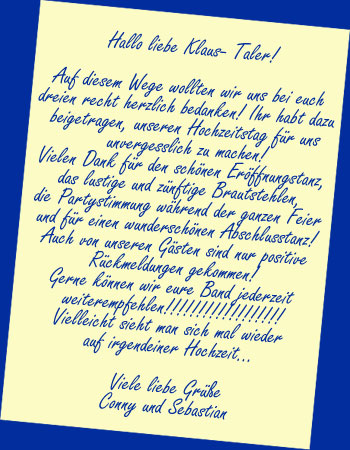 Hallo liebe Klaus- Taler!
Auf diesem Wege wollten wir uns bei euch
dreien recht herzlich bedanken! Ihr habt dazu
beigetragen, unseren Hochzeitstag für uns
unvergesslich zu machen!
Vielen Dank für den schönen Eröffnungstanz,
das lustige und zünftige Brautstehlen,
die Partystimmung während der ganzen Feier
und für einen wunderschönen Abschlusstanz!
Auch von unseren Gästen sind nur positive
Rückmeldungen gekommen!
Gerne können wir eure Band jederzeit
weiterempfehlen!!!!!!!!!!!!!!!!!!!
Vielleicht sieht man sich mal wieder
auf irgendeiner Hochzeit...
Viele liebe Grüße
Conny und Sebastian